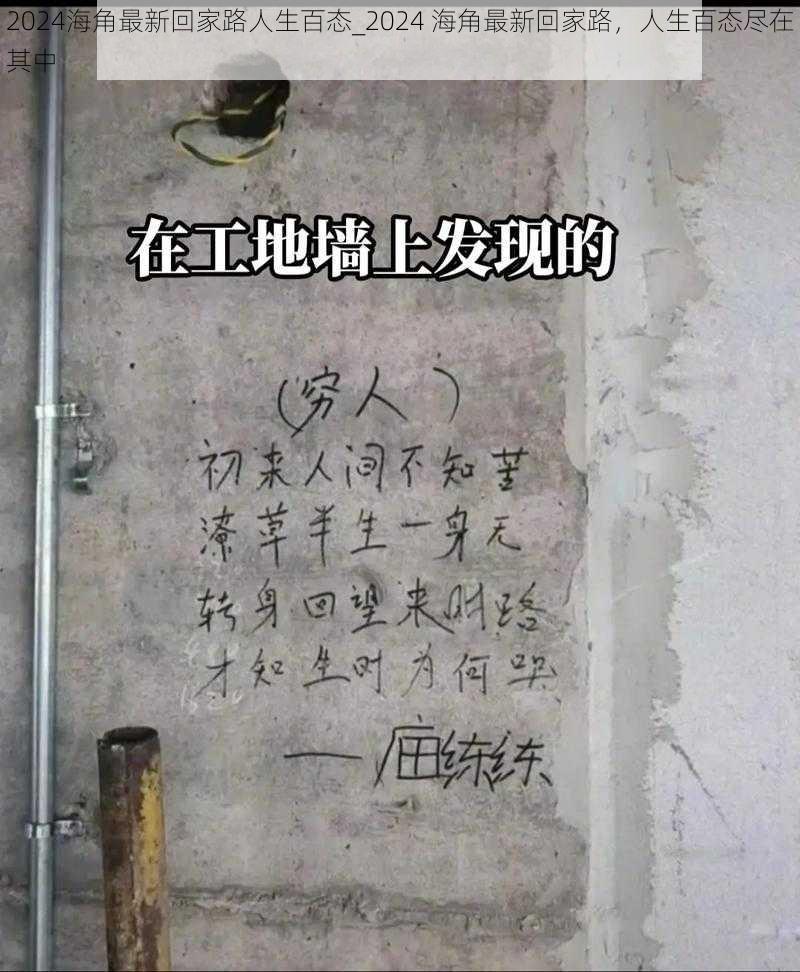 2024海角最新回家路人生百态_2024 海角最新回家路，人生百态尽在
其中
在工地墙上发现的
（穷人）
初来人间不知苦
潦草半生一身无
转身回望来时路
才知生时为何哭
——庙练练